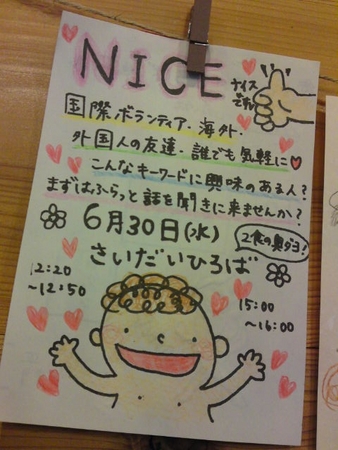 NICE
ナイスです!
国際ボランティア・海外・
外国人の友達・誰でも気軽に♡
こんなキーワードに興味のある人?
まずはふらっと話を聞きに来ませんか?
6月30日(水)
2食の奥ダヨ!
さいだいひろば
12:20
~12:50
15:00
~16:00